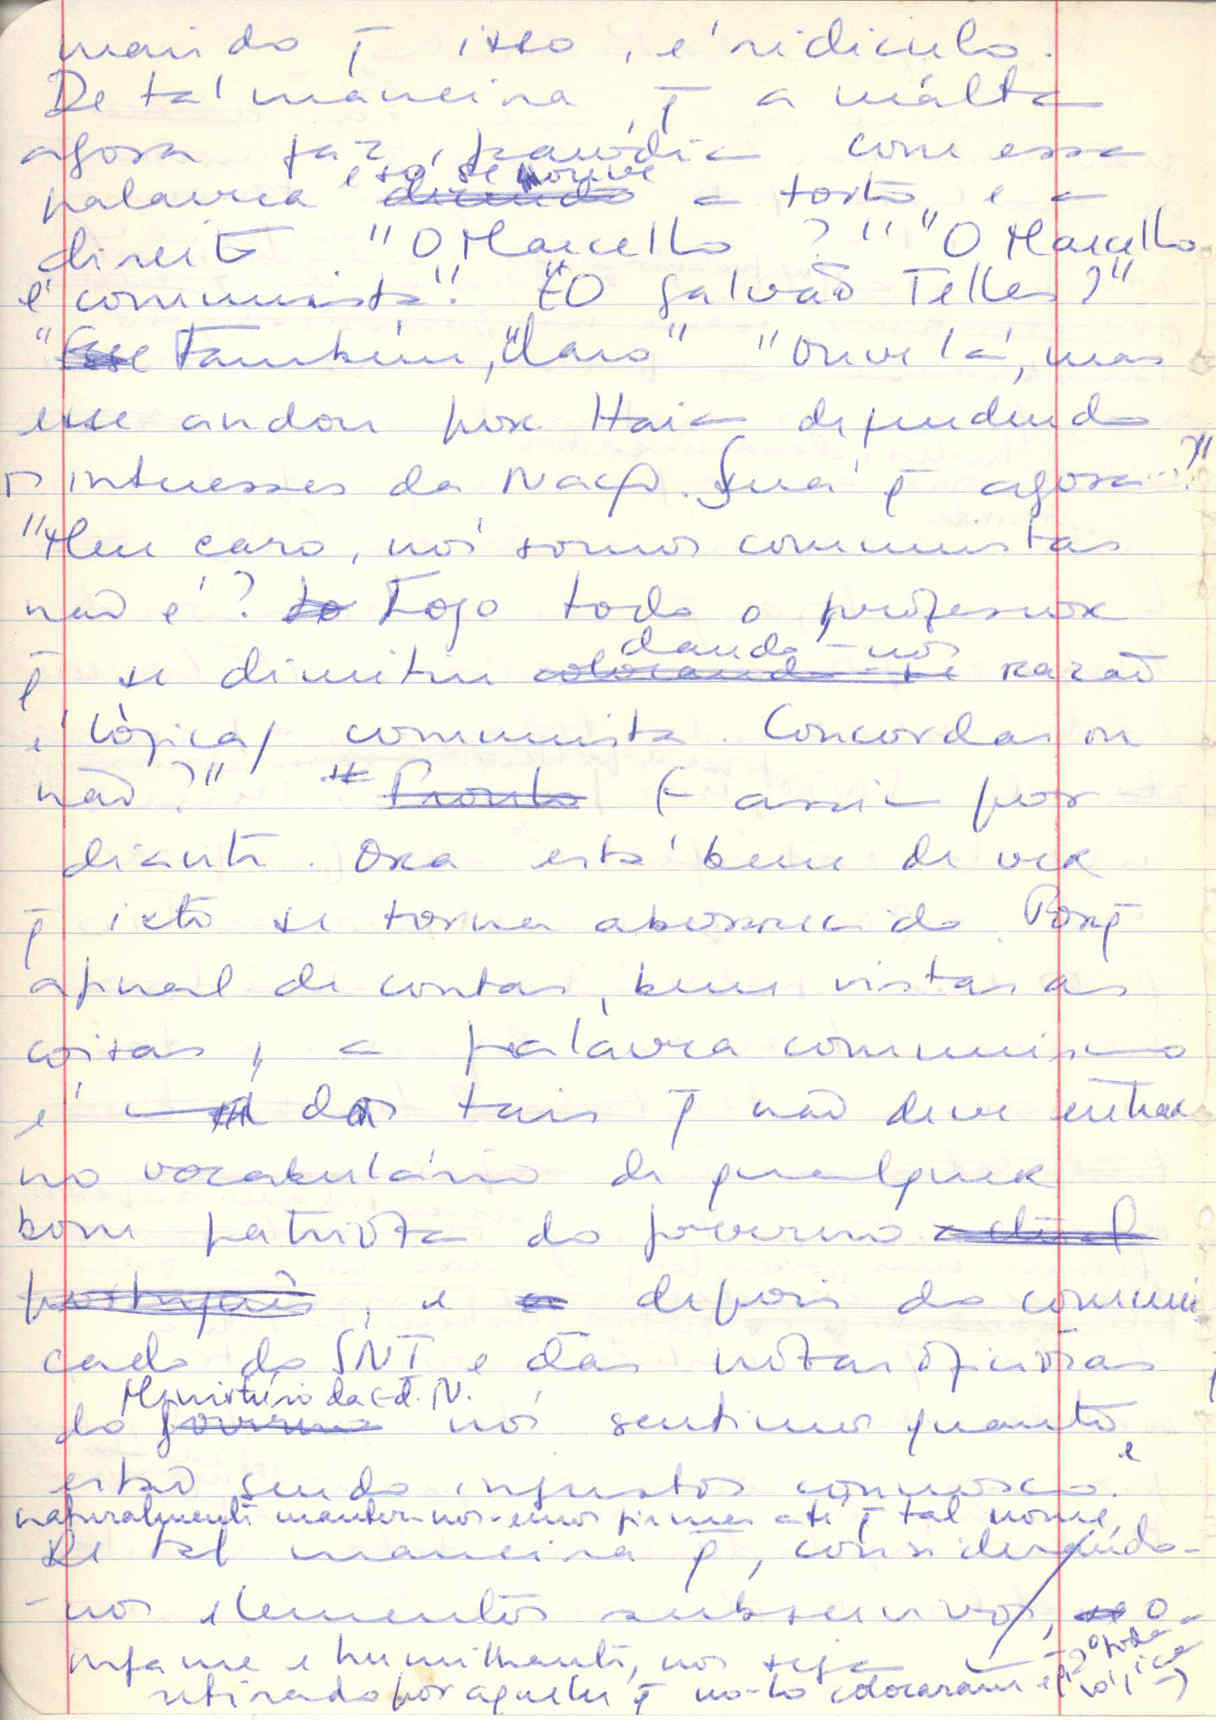 mando q̄ isso, é ridiculo.
De tal maneira, q̄ a malta
agora faz paródia com essa
e só se ouve
palavra dizendo a torto e a
direito "O Marcello?" "O Marcello
é comunista"! "O Galvão Telles?"
"Esse Também, claro" "Ouve lá, mas
esse andou por Haia defendendo
os interesses da Nação. Será q̄ agora...?"
"Meu caro, nós somos comunistas
não é? Logo todo o professor
dando-nos
q̄ se dimitiu colocando-se razão
é lògica/ comunista. Concordas ou
não?" Pronto E assim por
diante. Ora está bem de ver
q̄ isto se torna aborrecido. Porq̄
afinal de contas, bem vistas as
coisas, a palavra comunismo
é das tais q̄ não deve entrar
no vocabulário de qualquer
bom patriota do governo actual
português, e depois do comuni
cado do SNI e das notas oficiosas
Ministério da Ed. N.
do governo nós sentimos quanto
estão sendo injustos connosco. e
naturalmente manter-nos-emos firmes até q̄ tal nome,
De tal maneira q̄, considerando-
-nos elementos subversivos,
infame e humilhante, nos seja
retirado por aqueles q̄ no-lo colocaram